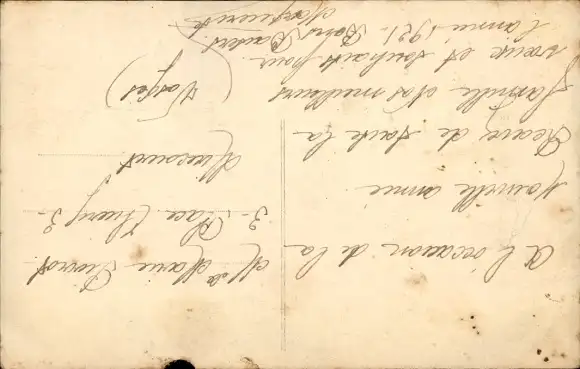 A l'occasion de la
Nouvelle année
Recevez de toute la
famille Nos meilleurs
vœux et souhaits pour
l'année 1921. Bons Baisers
Marguerite
Melle Marie
3 - Place Thierry 3 -
Mirecourt
(Vosges)